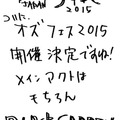 JAPAN
2015
ついに、
オズフェス2015
開催決定ですね!
メインアクトは
もちろん